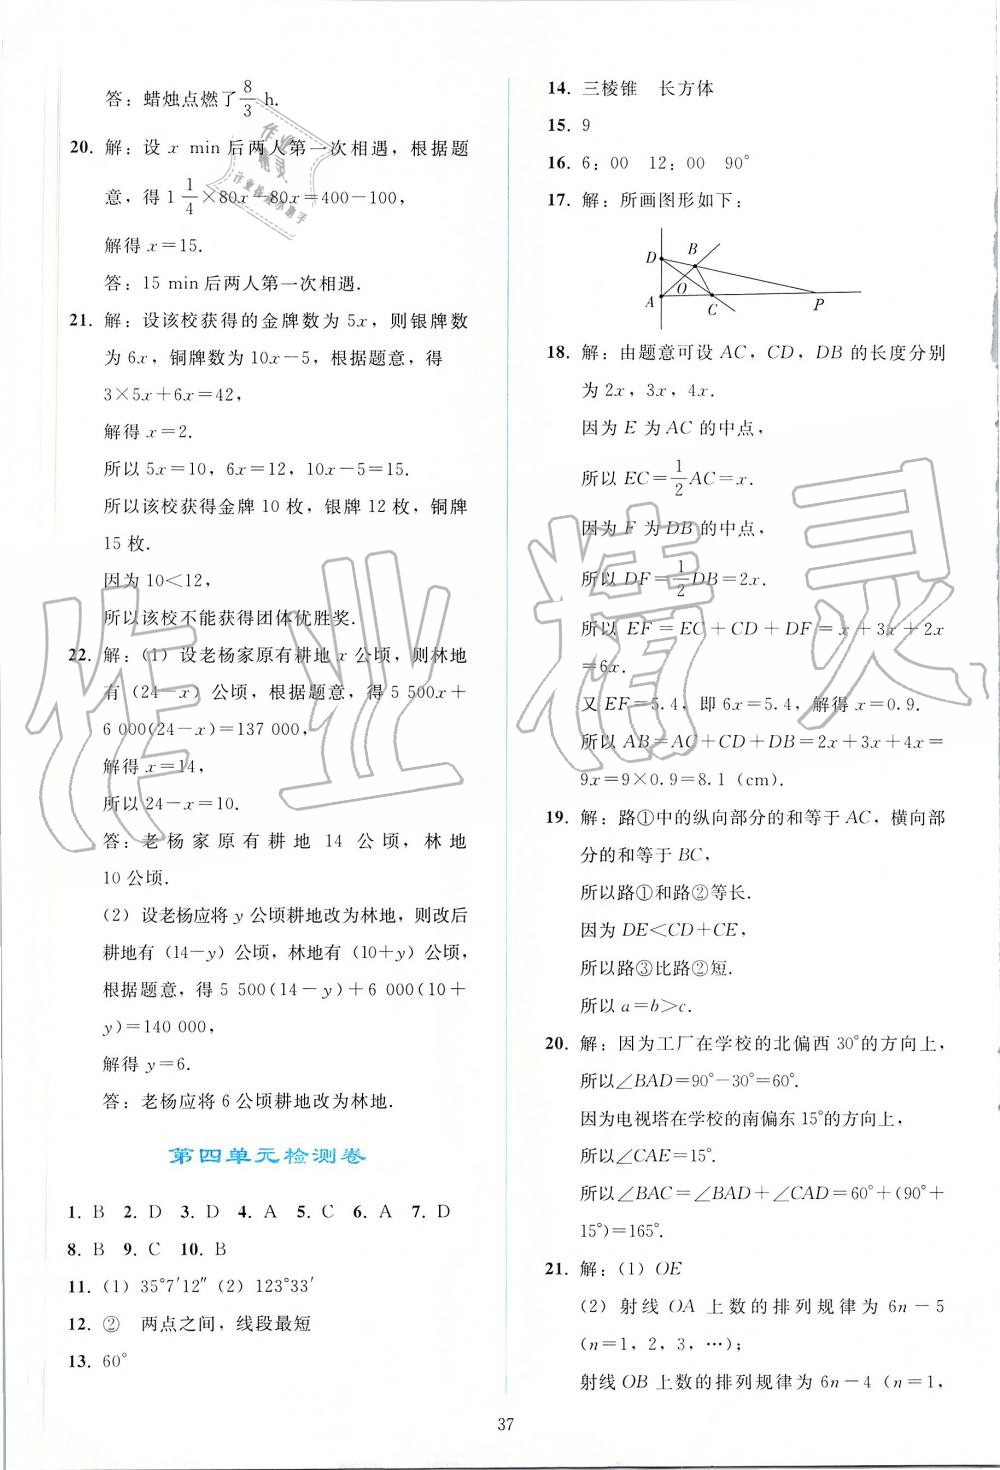 答：蜡烛点燃了8/3 h.
20. 解：设 x min 后两人第一次相遇，根据题
意，得 1 1/4×80x 80x＝400－100，
解得 x＝15.
答：15 min后两人第一次相遇.
21. 解：设该校获得的金牌数为 5x，则银牌数
为 6x，铜牌数为 10x－5，根据题意，得
3×5x＋6x＝42，
解得 x＝2.
所以 5x＝10，6x＝12，10x－5＝15.
所以该校获得金牌 10 枚，银牌 12 枚，铜牌
15 枚.
因为 10＜12，
所以该校不能获得团体优胜奖.
22. 解：(1) 设老杨家原有耕地 x 公顷，则林地
有 (24－x) 公顷，根据题意，得 5 500x＋
6 000(24－x)＝137 000，
解得 x＝14，
所以 24－x＝10.
答：老杨家原有耕地 14 公顷，林地
10 公顷.
(2) 设老杨应将 y 公顷耕地改为林地，则改后
耕地有 (14－y) 公顷，林地有 (10＋y) 公顷，
根据题意，得 5 500(14－y)＋6 000(10＋
y)＝140 000，
解得 y＝6.
答：老杨应将 6 公顷耕地改为林地.
第四单元检测卷
1. B 2. D 3. D 4. A 5. C 6. A 7. D
8. B 9. C 10. B
11. (1) 35°7′12″ (2) 123°33′
12. ② 两点之间，线段最短
13. 60°
14. 三棱锥 长方体
15. 9
16. 6：00 12：00 90°
17. 解：所画图形如下：
D B
A O C P
18. 解：由题意可设 AC，CD，DB 的长度分别
为 2x，3x，4x.
因为 E 为 AC 的中点，
所以 EC＝1/2AC＝x.
因为 F 为 DB 的中点，
所以 DF＝1/2DB＝2x.
所以 EF＝EC＋CD＋DF＝x＋3x＋2x
＝6x.
又 EF＝5.4，即 6x＝5.4，解得 x＝0.9.
所以 AB＝AC＋CD＋DB＝2x＋3x＋4x＝
9x＝9×0.9＝8.1 (cm).
19. 解：路①中的纵向部分的和等于 AC，横向部
分的和等于 BC，
所以路①和路②等长.
因为 DE＜CD＋CE，
所以路③比路②短.
所以 a＝b＞c.
20. 解：因为工厂在学校的北偏西 30°的方向上，
所以∠BAD＝90°－30°＝60°.
因为电视塔在学校的南偏东 15°的方向上，
所以∠CAE＝15°.
所以∠BAC＝∠BAD＋∠CAD＝60°＋(90°＋
15°)＝165°.
21. 解：(1) OE
(2) 射线 OA 上数的排列规律为 6n－5
(n＝1，2，3，…)；
射线 OB 上数的排列规律为 6n－4 (n＝1，
37
作业精灵